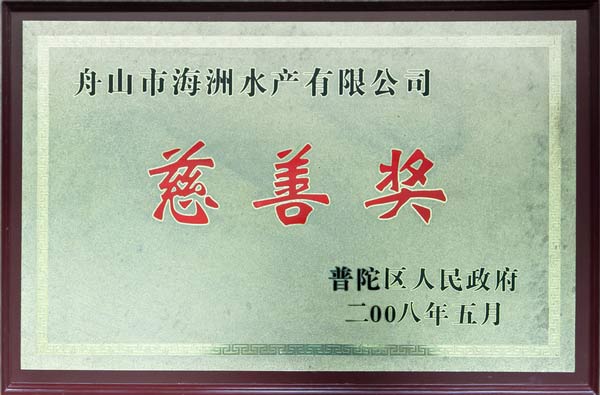 舟山市海洲水产有限公司
慈善奖
普陀区人民政府
二00八年五月